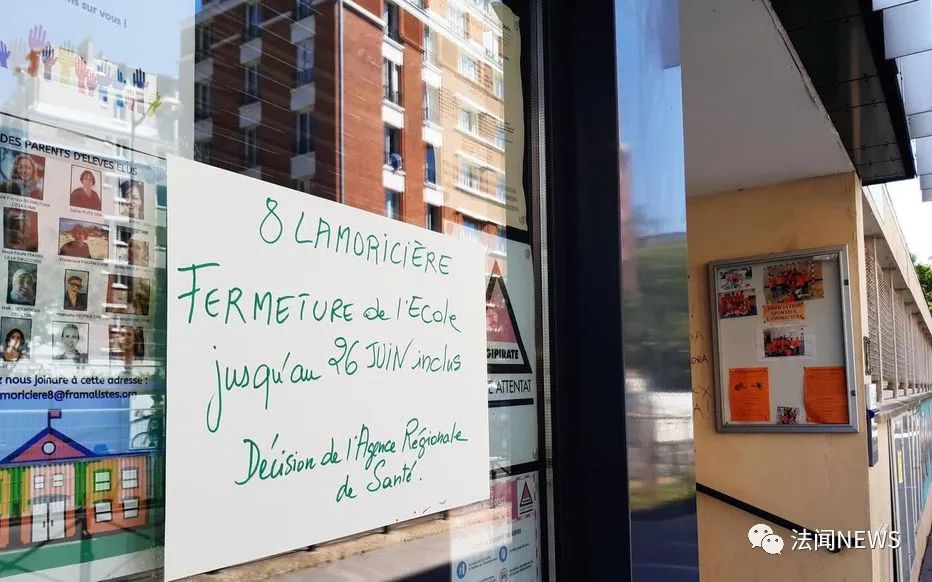 ns sur vous !
DES PARENTS D'ELEVES ELUS
z nous joindre à cette adresse :
moriciere8@framalistes.org
8 LAMORICIÈRE
FERMETURE de l'Ecole
jusqu'au 26 JUIN inclus
Décision de l'Agence Régionale
de Santé.
GIPIRATE
E ATTENTAT
ASSOCIATION
SPORTIVE
LAMORICIERE
法闻NEWS